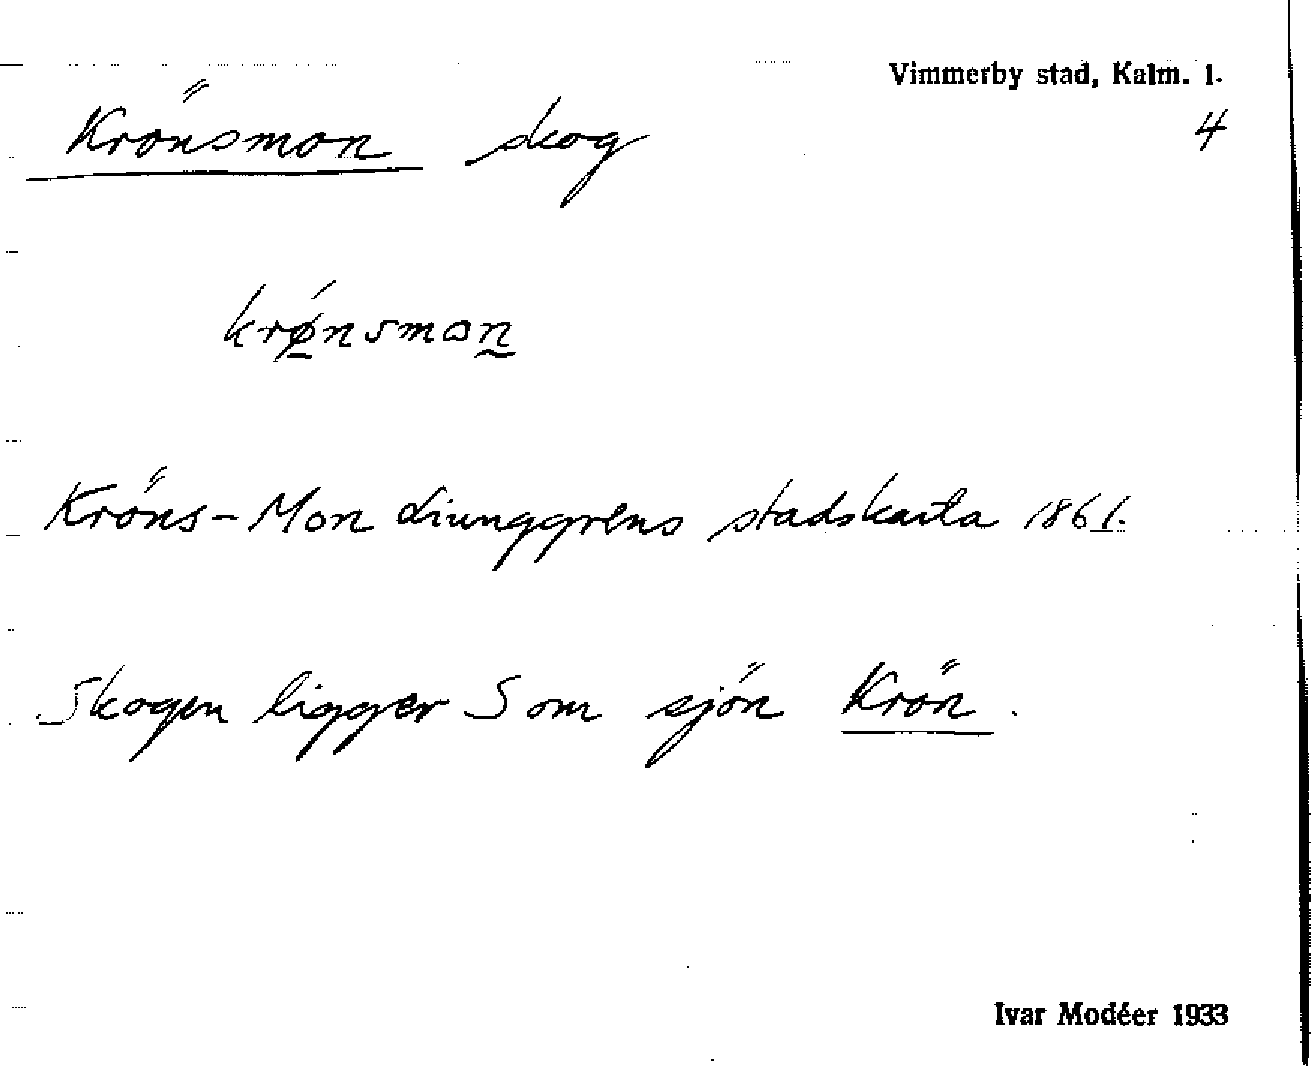 Vimmerby stad, Kalm. l.
4
Krönsmon skog
krǿnsmon
Kröns-Mon Liunggrens stadskarta 1861.
Skogen ligger S om sjön Krön.
Ivar Modéer 1933